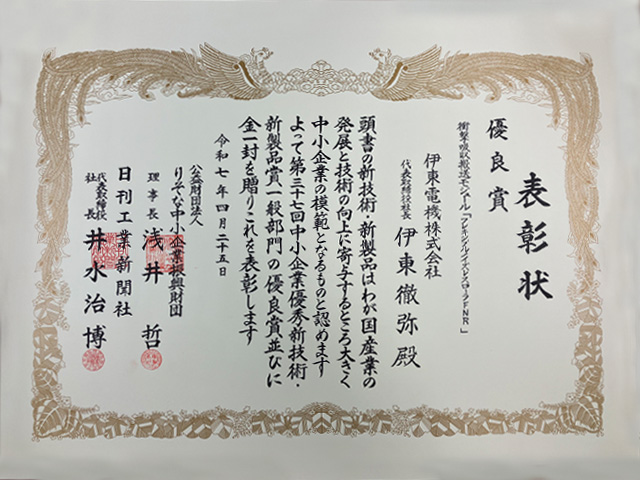 表彰状
優良賞
衝撃吸収搬送モジュール「
FNR」
伊東電機株式会社
代表取締役社長 伊東徹弥殿
頭書の新技術・新製品はわが国産業の
発展と技術の向上に寄与するところ大きく
中小企業の模範となるものと認めます
よって第三十七回中小企業優秀新技術・
新製品賞一般部門の優良賞並びに
金一封を贈りこれを表彰します
令和七年四月二十五日
公益財団法人
りそな中小企業振興財団
理事長 浅井 哲
日刊工業新聞社
代表取締役社長 井水治博